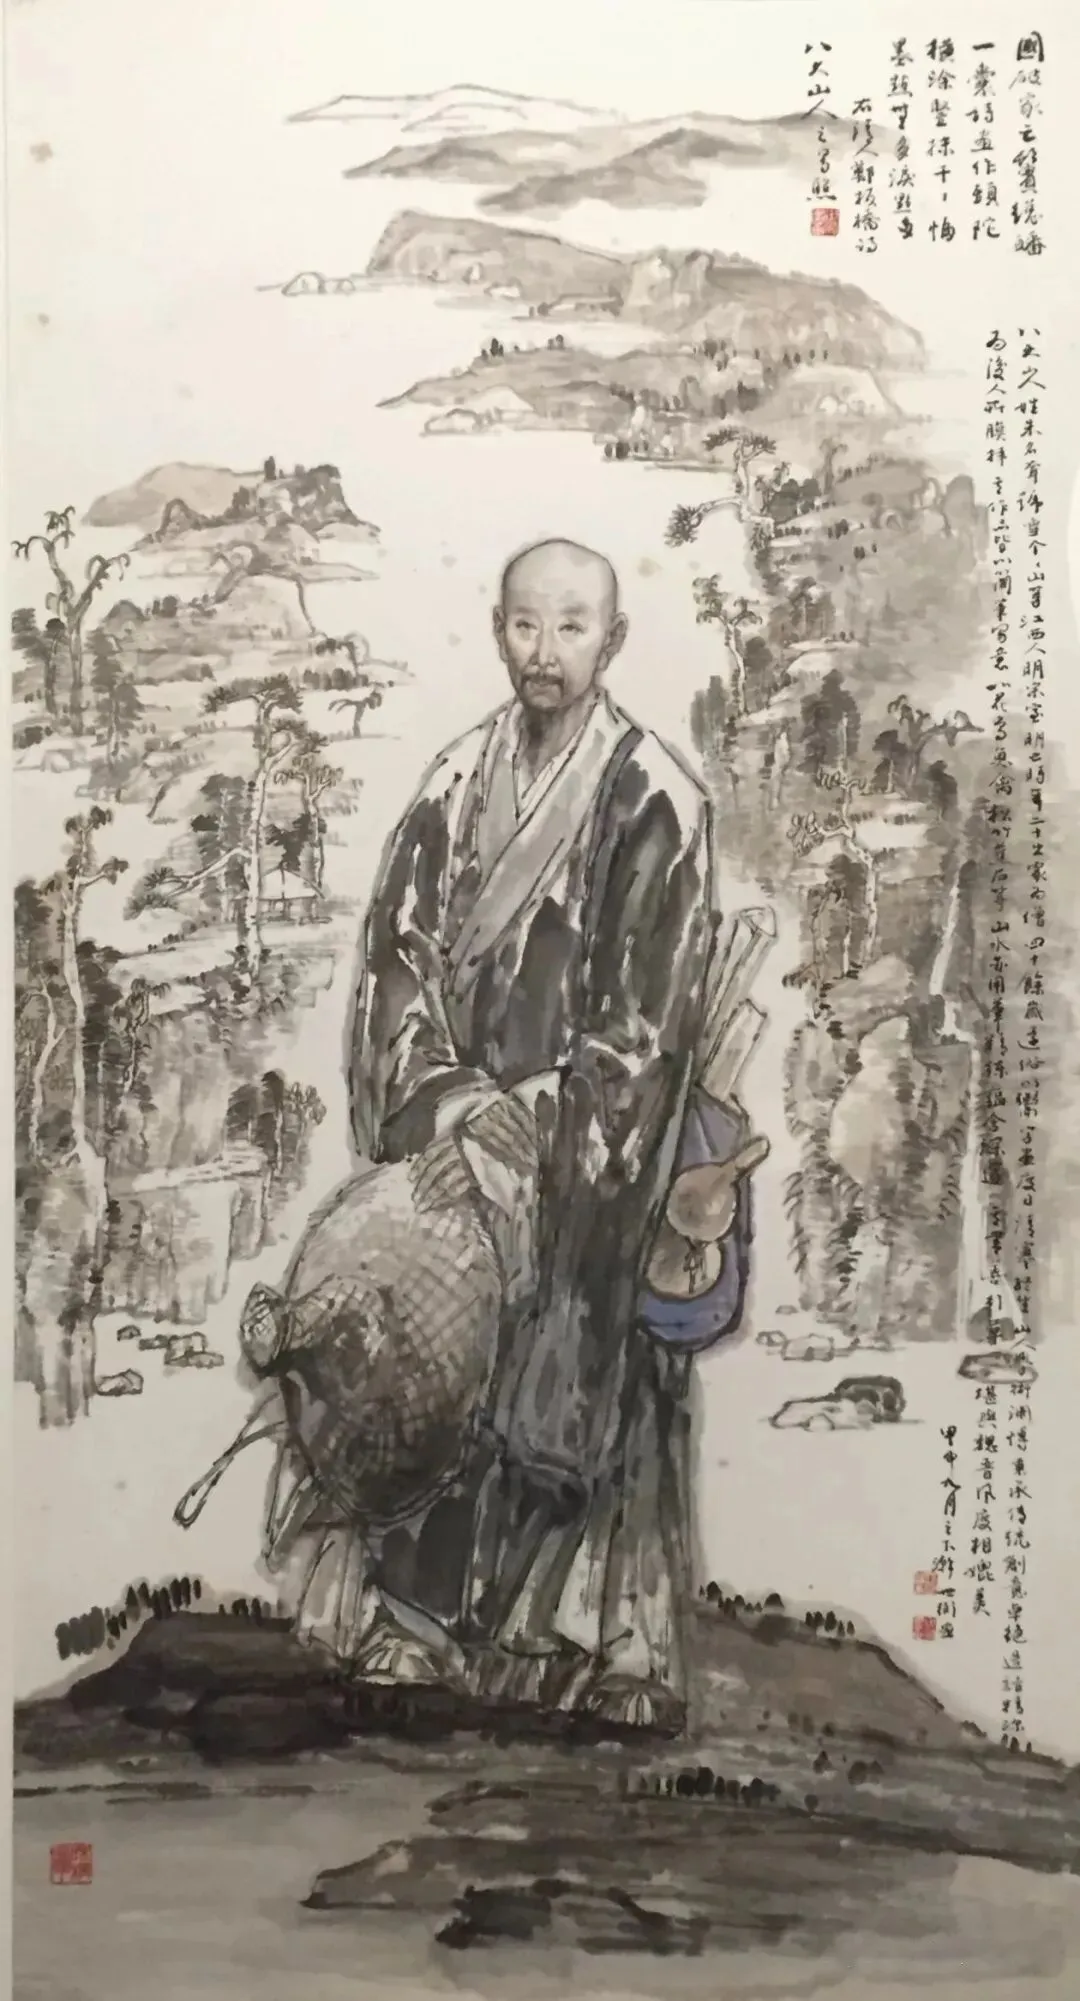 國破家亡鬢總皤
一囊詩畫作頭陀
橫塗豎抹千千幅
墨點無多淚點多
右清人鄭板橋詩
八大山人之寫照
八大山人姓朱名耷號雪个个山等江西人明宗室明亡時年二十出家為僧四十餘歲還俗以鬻字畫度日清寒終生山人學術淵博秉承傳統創意卓絕造詣精深
為後人所膜拜其作品皆以簡筆寫意以花鳥魚禽松竹蕉石等山水亦用筆精疎蘊含深邃 堪與魏晉風度相媲美
甲申九月之下澣世衡畫